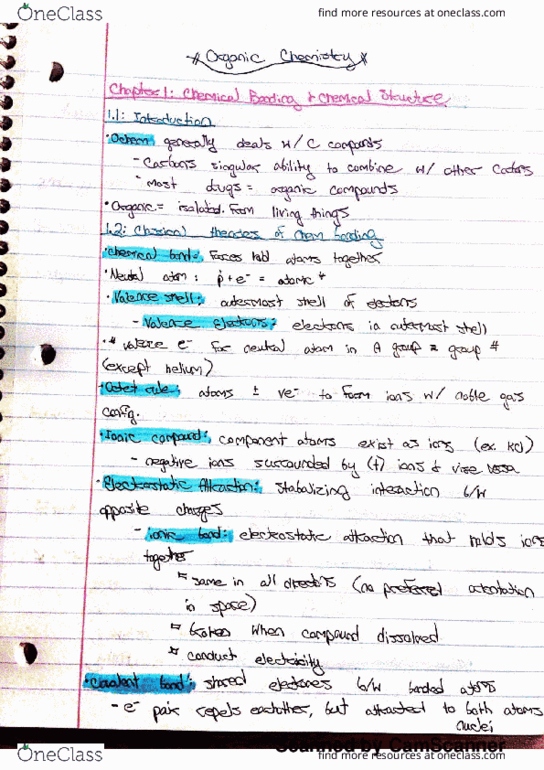 OneClass
find more resources at oneclass.com
* Organic Chemistry *
Chapter 1: Chemical Bonding & Chemical Structure
1.1: Introduction
• Ochem generally deals w/ C compounds
- Carbons singular ability to combine w/ other Carbons
- Most drugs = organic compounds
• Organic = isolated from living things
1.2: Classical theories of chem bonding
• Chemical bond: Forces hold atoms together
• Neutral atom: p+e⁻ = atomic #
• Valence shell: outermost shell of electrons
- Valence electrons: electrons in outermost shell
• # valence e⁻ for neutral atom in A group = group #
(except helium)
• Octet rule: atoms ± ve⁻ to form ions w/ noble gas
config.
• Ionic compound: component atoms exist as ions (ex. KCl)
- negative ions surrounded by (+) ions & vice versa
• Electrostatic Attraction: stabalizing interaction b/w
opposite charges
- ionic bond: electrostatic attraction that holds ions
together
same in all directions (no preferred orientation
in space)
when compound dissolved
* conduct electricity
• Covalent bond: shared electrones b/w bonded atoms
- e⁻ pair repels eachother, but attracted to both atoms
nuclei
Scanned by CamScanner
OneClass
find more resources at oneclass.com